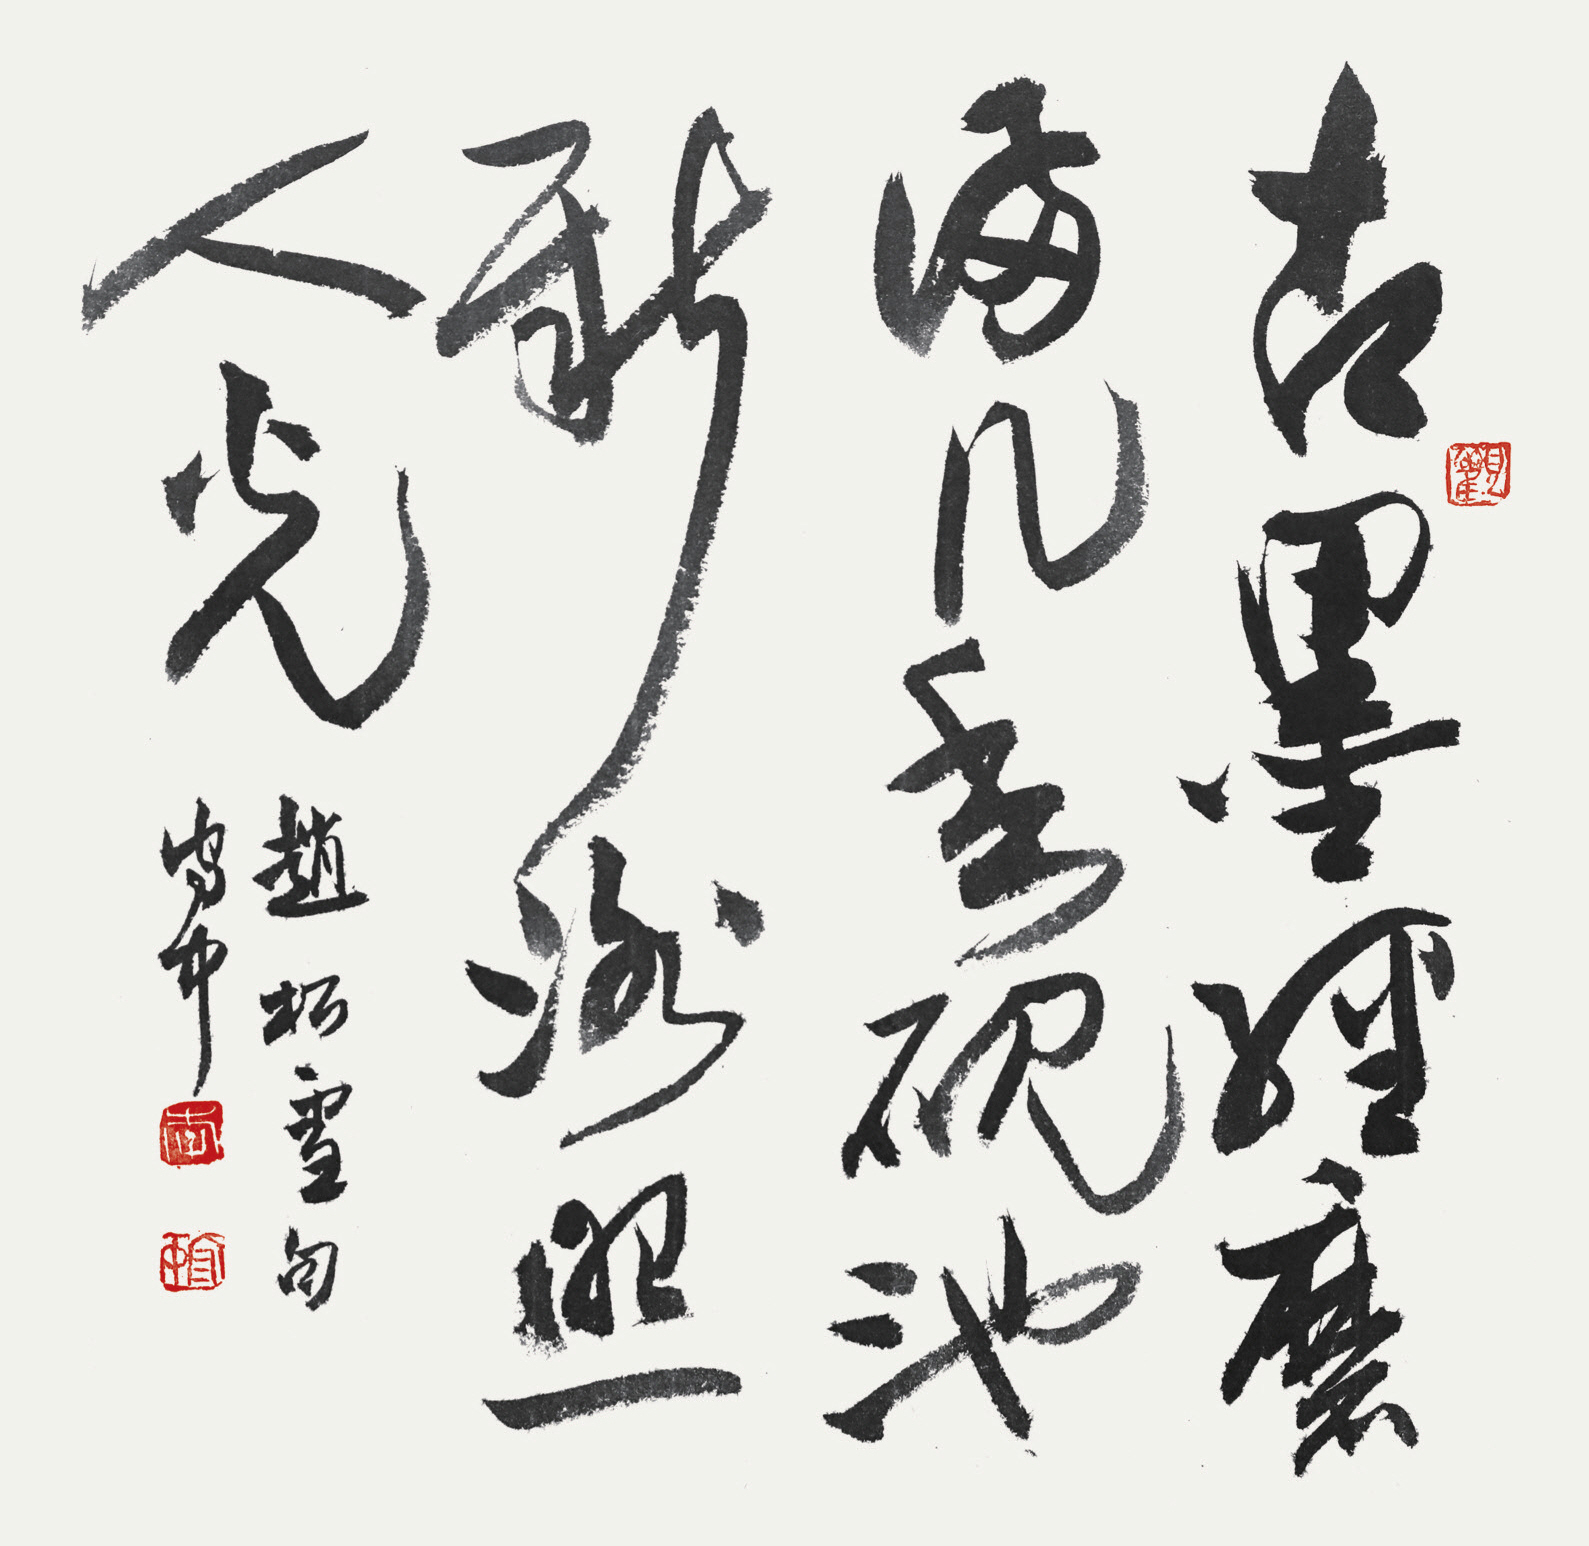 古墨輕磨
滿几香硯池
新浴照
人光
趙松雪句